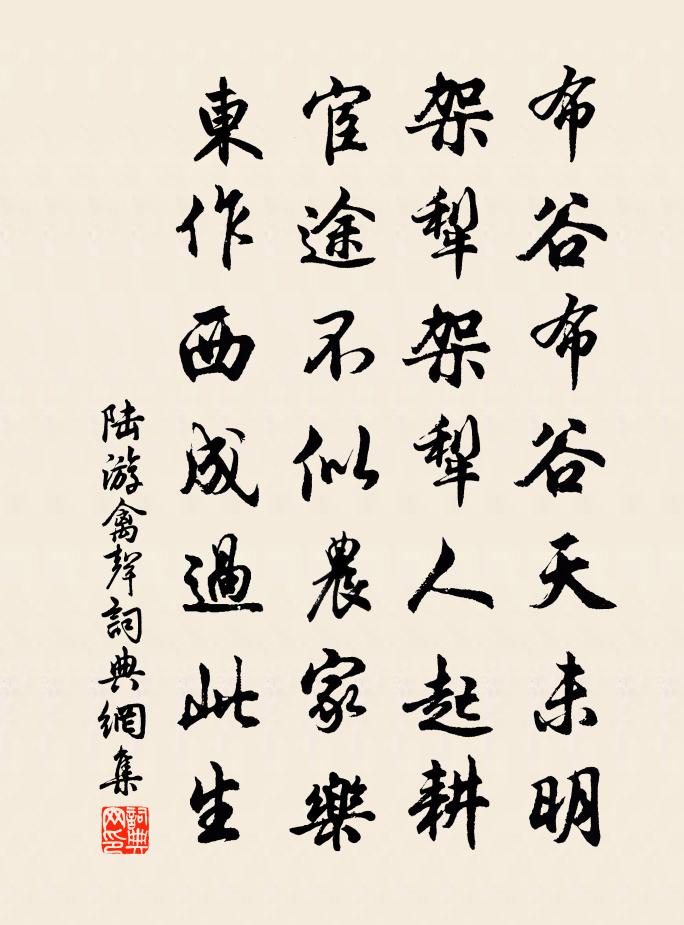 布谷布谷天未明
架犁架犁人起耕
宦途不似農家樂
東作西成過此生
陆游禽聲詞典網集
詞典網印